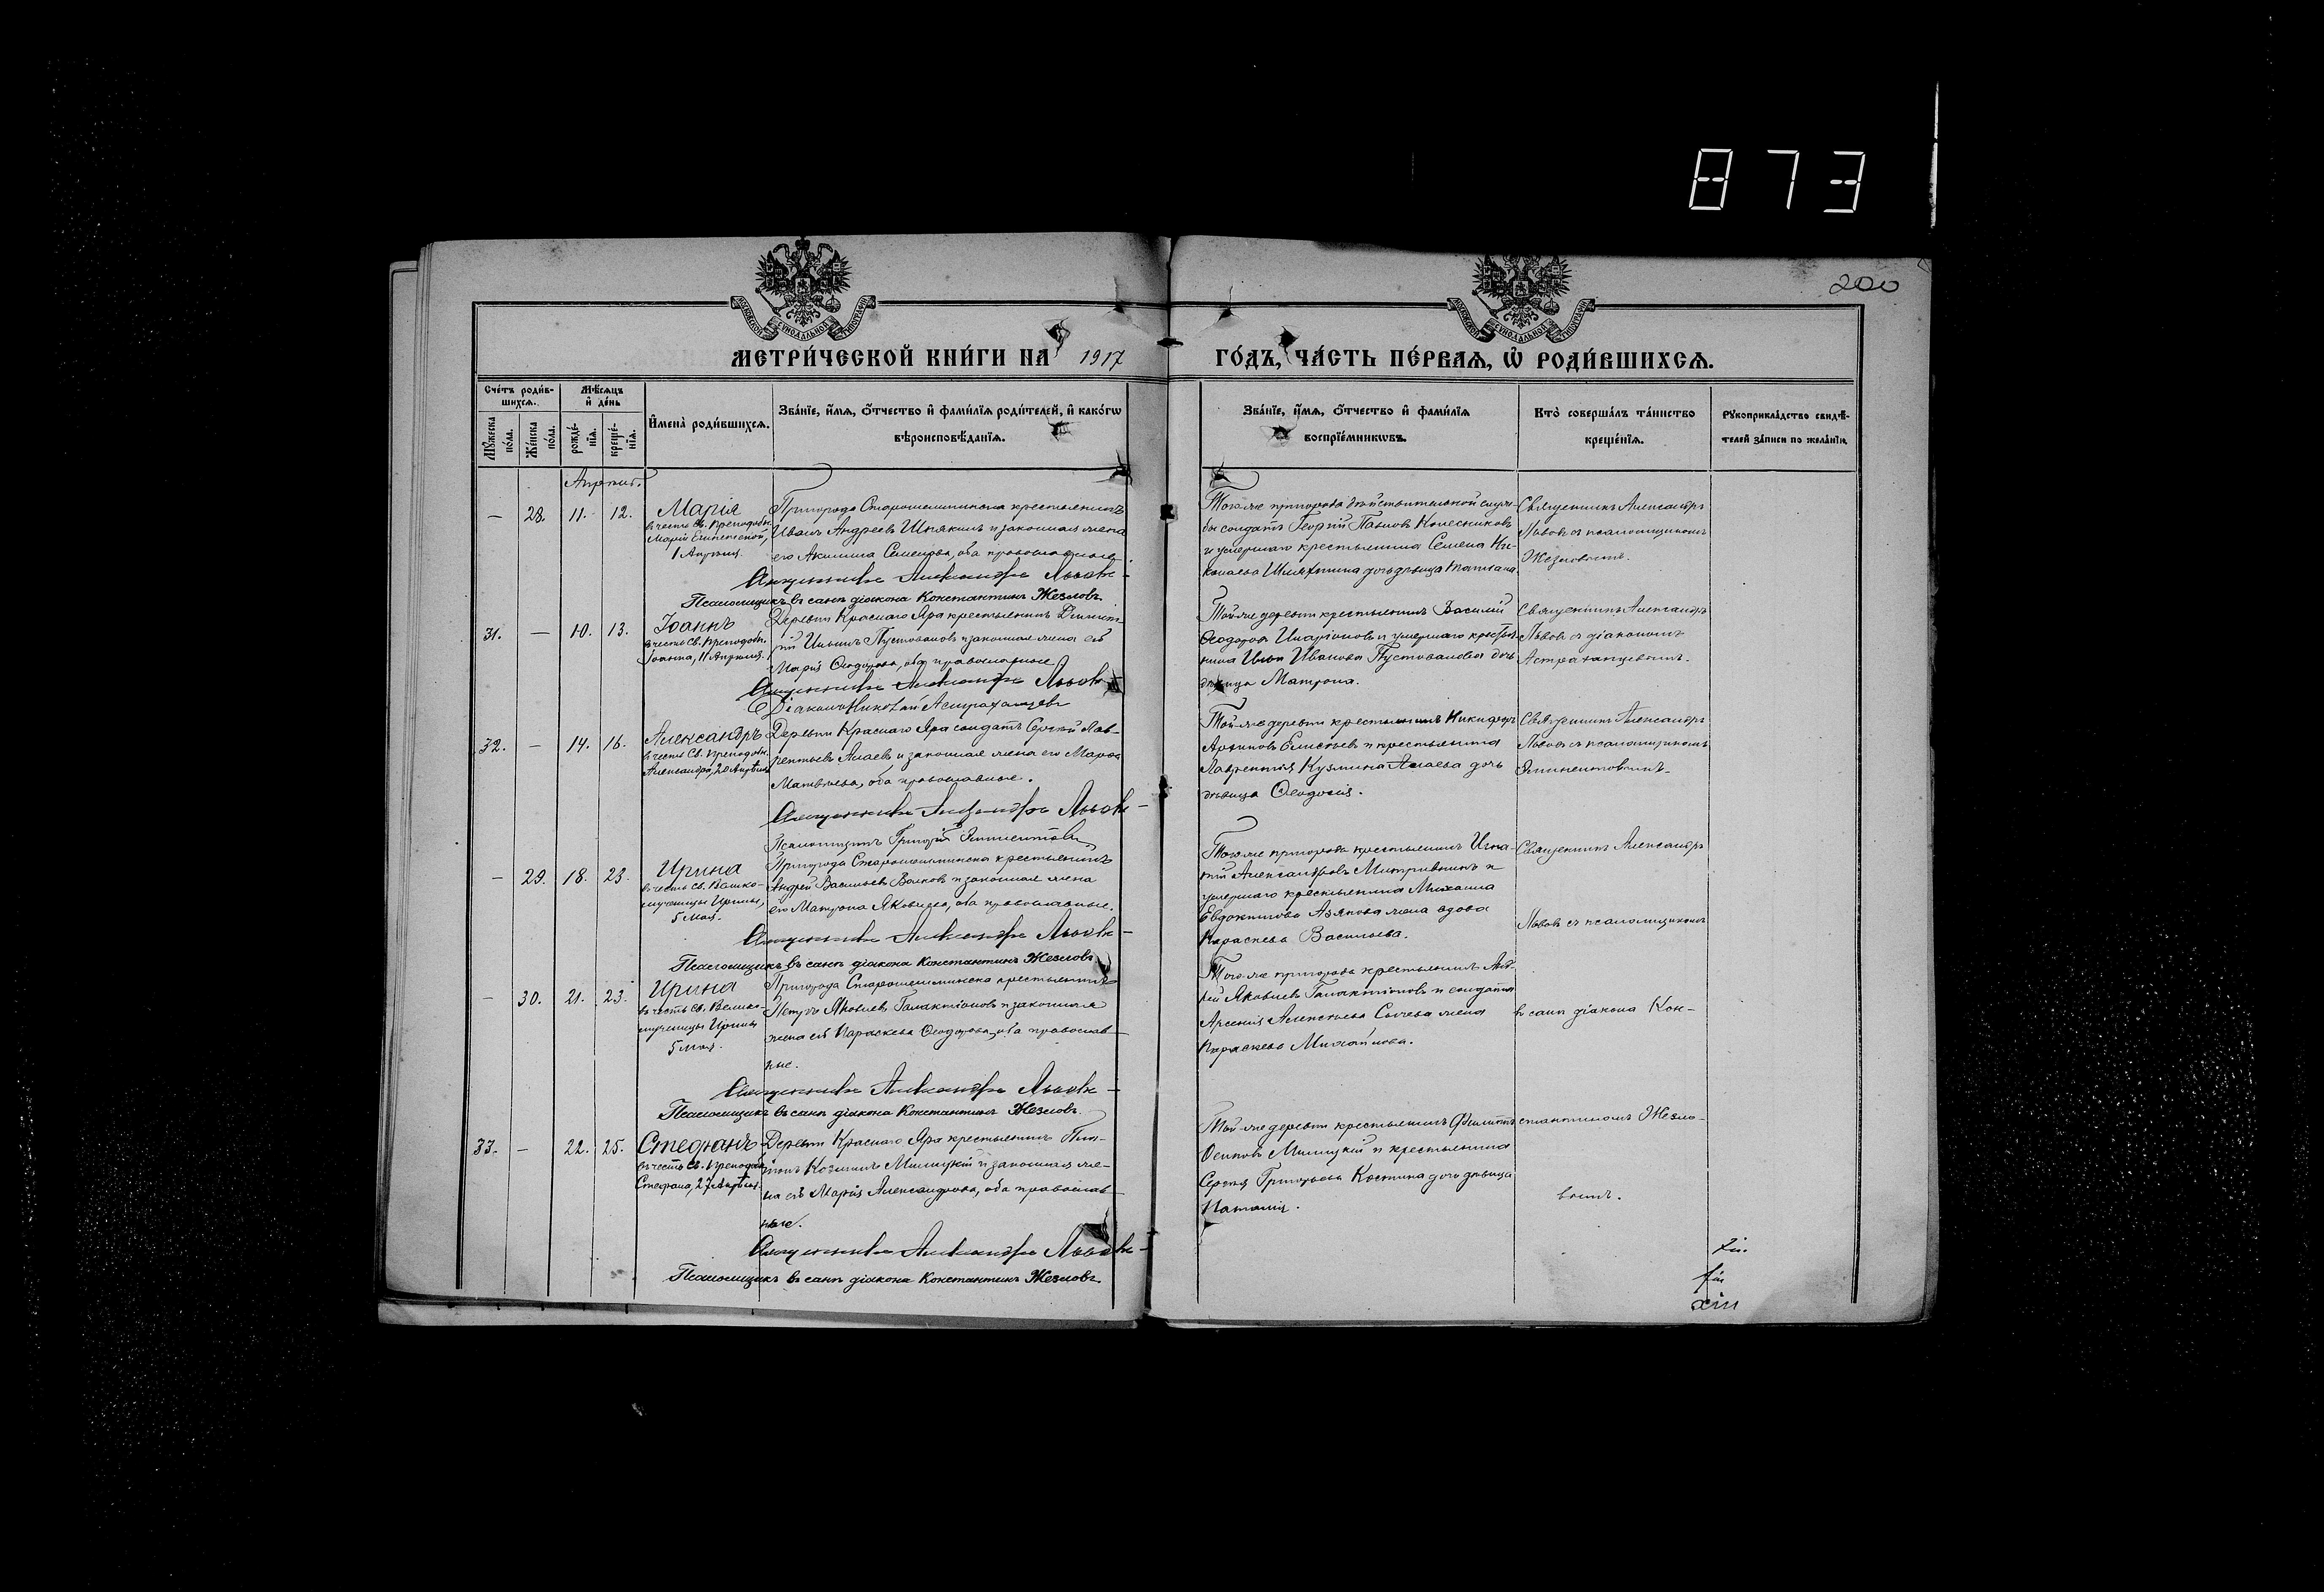 873
200
МЕТРИ́ЧЕСКОЙ КНИ́ГИ НА 1917 ГО́ДЪ, ЧА́СТЬ ПЕ́РВАЯ, Ѡ҆ РОДИ́ВШИХСЯ.
Сче́тъ роди́в-
шихся.
Мѣ́сяцъ
и҆ де́нь
Мꙋ́жеска
по́ла.
Же́нска
по́ла.
рожде́-
нїѧ.
креще́-
нїѧ.
И҆мена̀ роди́вшихся.
Зва́нїе, и҆́мя, ѻ҆́тчество и҆ фами́лїя роди́телей, и҆ како́гѡ
вѣроисповѣ́данїя.
Зва́нїе, и҆́мя, ѻ҆́тчество и҆ фами́лїя
воспрїе́мникѡвъ.
Кто̀ соверша́лъ та́инство
креще́нїя.
Рꙋкоприкла́дство свидѣ́-
телей за́писи по жела́нїю.
Апрѣль.
— 28. 11. 12.
Марія
въ честь св. Преподобн.
Маріи Египетской,
1 Апрѣля.
Пригорода Старошешминска крестьянинъ
Иванъ Андреевъ Шлякинъ и законная жена
его Акилина Семенова, оба православные
Священникъ Александръ Львовъ
Псаломщикъ въ санѣ діакона Константинъ Жезловъ.
Того-же пригорода дѣйствительной служ-
бы солдатъ Георгій Павловъ Колесниковъ
и умершаго крестьянина Семена Ни-
колаева дочь дѣвица Татіана.
Священникъ Александръ
Львовъ съ псаломщикомъ
Жезловымъ.
31. — 10. 13.
Іоаннъ
въ честь св. Преподобн.
Іоанна, 11 Апрѣля.
Деревни Краснаго Яра крестьянинъ Димит-
рій Ильинъ Пустоваловъ и законная жена его
Марія Ѳеодорова, оба православные
Священникъ Александръ Львовъ
Діаконъ Николай Астраханцевъ
Той-же деревни крестьянинъ Василій
Ѳеодоровъ Иларіоновъ и умершаго крестья-
нина Ильи Иванова Пустовалова дочь
дѣвица Матрона.
Священникъ Александръ
Львовъ съ діакономъ
Астраханцевымъ.
32. — 14. 16.
Александръ
въ честь св. Преподобн.
Александра, 20 Апрѣля
Деревни Краснаго Яра солдатъ Сергій Лав-
рентьевъ Агаевъ и законная жена его Марѳа
Матвѣева, оба православные.
Священникъ Александръ Львовъ
Псаломщикъ Григорій
Той-же деревни крестьянинъ Никифоръ
Архиповъ Елисѣевъ и крестьянина
Лаврентія Кузмина Агаева дочь
дѣвица Ѳеодосія.
Священникъ Александръ
Львовъ съ псаломщикомъ
— 29. 18. 23.
Ирина
въ честь св. Велико-
мученицы Ирины,
5 Мая.
Пригорода Старошешминска крестьянинъ
Андрей Васильевъ Волковъ и законная жена
его Матрона Яковлева, оба православные.
Священникъ Александръ Львовъ
Псаломщикъ въ санѣ діакона Константинъ Жезловъ
Того-же пригорода крестьянинъ Игна-
тій Александровъ и
умершаго крестьянина Михаила
Евдокимова жена вдова
Параскева Васильева.
Священникъ Александръ
Львовъ съ псаломщикомъ
— 30. 21. 23.
Ирина
въ честь св. Велико-
мученицы Ирины
5 Мая.
Пригорода Старошешминска крестьянинъ
Петръ Яковлевъ Галактіоновъ и законная
жена его Параскева Ѳеодорова, оба православ-
ные.
Священникъ Александръ Львовъ
Псаломщикъ въ санѣ діакона Константинъ Жезловъ.
Того-же пригорода крестьянинъ
Яковлевъ Галактіоновъ и солдата
Арсенія Алексѣева Сычева жена
Параскева Михайлова.
въ санѣ діакона Кон-
33. — 22. 25.
Стефанъ
въ честь св. Преподоб.
Стефана, 27 Апрѣля.
Деревни Краснаго Яра крестьянинъ
Козминъ Милицкій и законная же-
на его Марія Александрова, оба православ-
ные.
Священникъ Александръ Львовъ
Псаломщикъ въ санѣ діакона Константинъ Жезловъ.
Той-же деревни крестьянинъ Филиппъ
Осиповъ Милицкій и крестьянина
Сергѣя Григорьева Костина дочь дѣвица
Наталія.
стантиномъ Жезло-
вымъ.